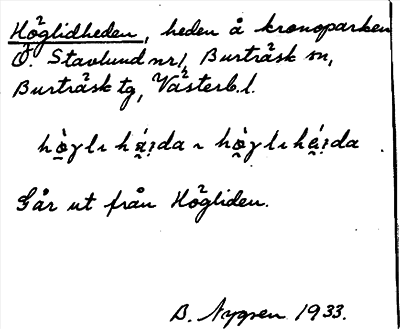 Höglidheden, heden å kronoparken
Ö. Stavlund nr 1, Burträsk sn,
Burträsk tg, Västerb. l.
Går ut från Högliden.
B. Nygren 1933.